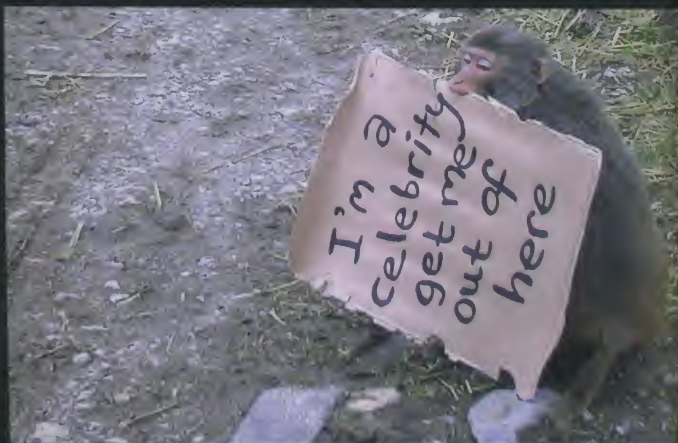 I'm a
celebrity
get me
out of
here